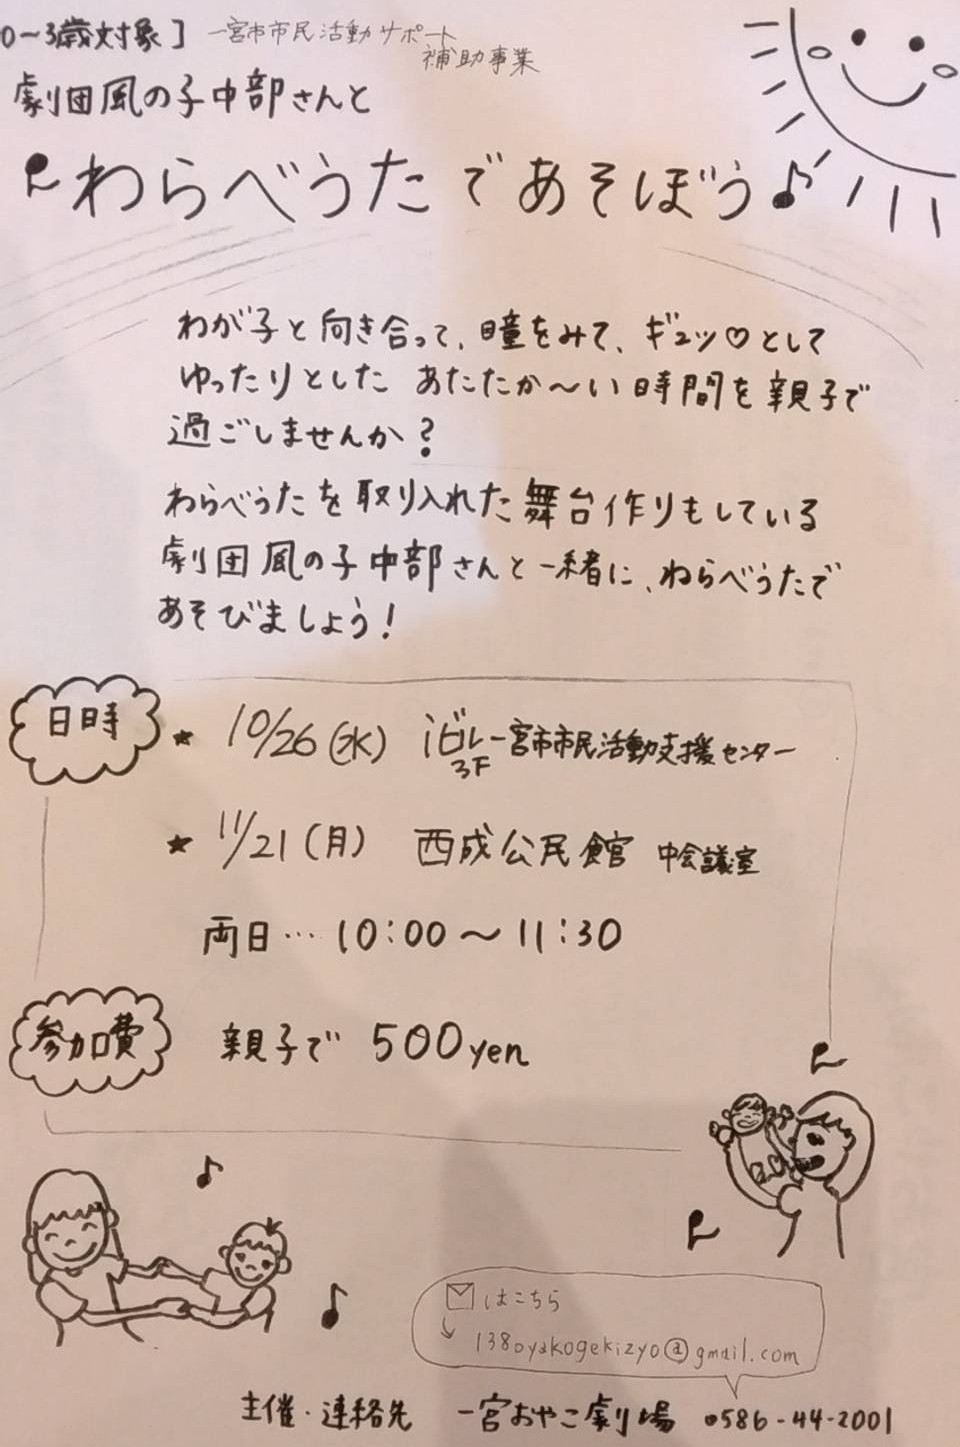 0〜3歳対象]
一宮市市民活動サポート
補助事業
劇団風の子中部さんと
わらべうたであそぼう
わが子と向き合って、瞳をみて、ギュッ♡として
ゆったりとした あたたか〜い時間を親子で
過ごしませんか?
わらべうたを取り入れた舞台作りもしている
劇団風の子中部さんと一緒に、わらべうたで
あそびましょう!
日時
★ 10/26(水) iビル3F 一宮市市民活動支援センター
★ 11/21(月) 西成公民館 中会議室
両日…10:00〜11:30
参加費 親子で 500yen
はこちら
138oyakogekizyo@gmail.com
主催・連絡先 一宮おやこ劇場 0586-44-2001